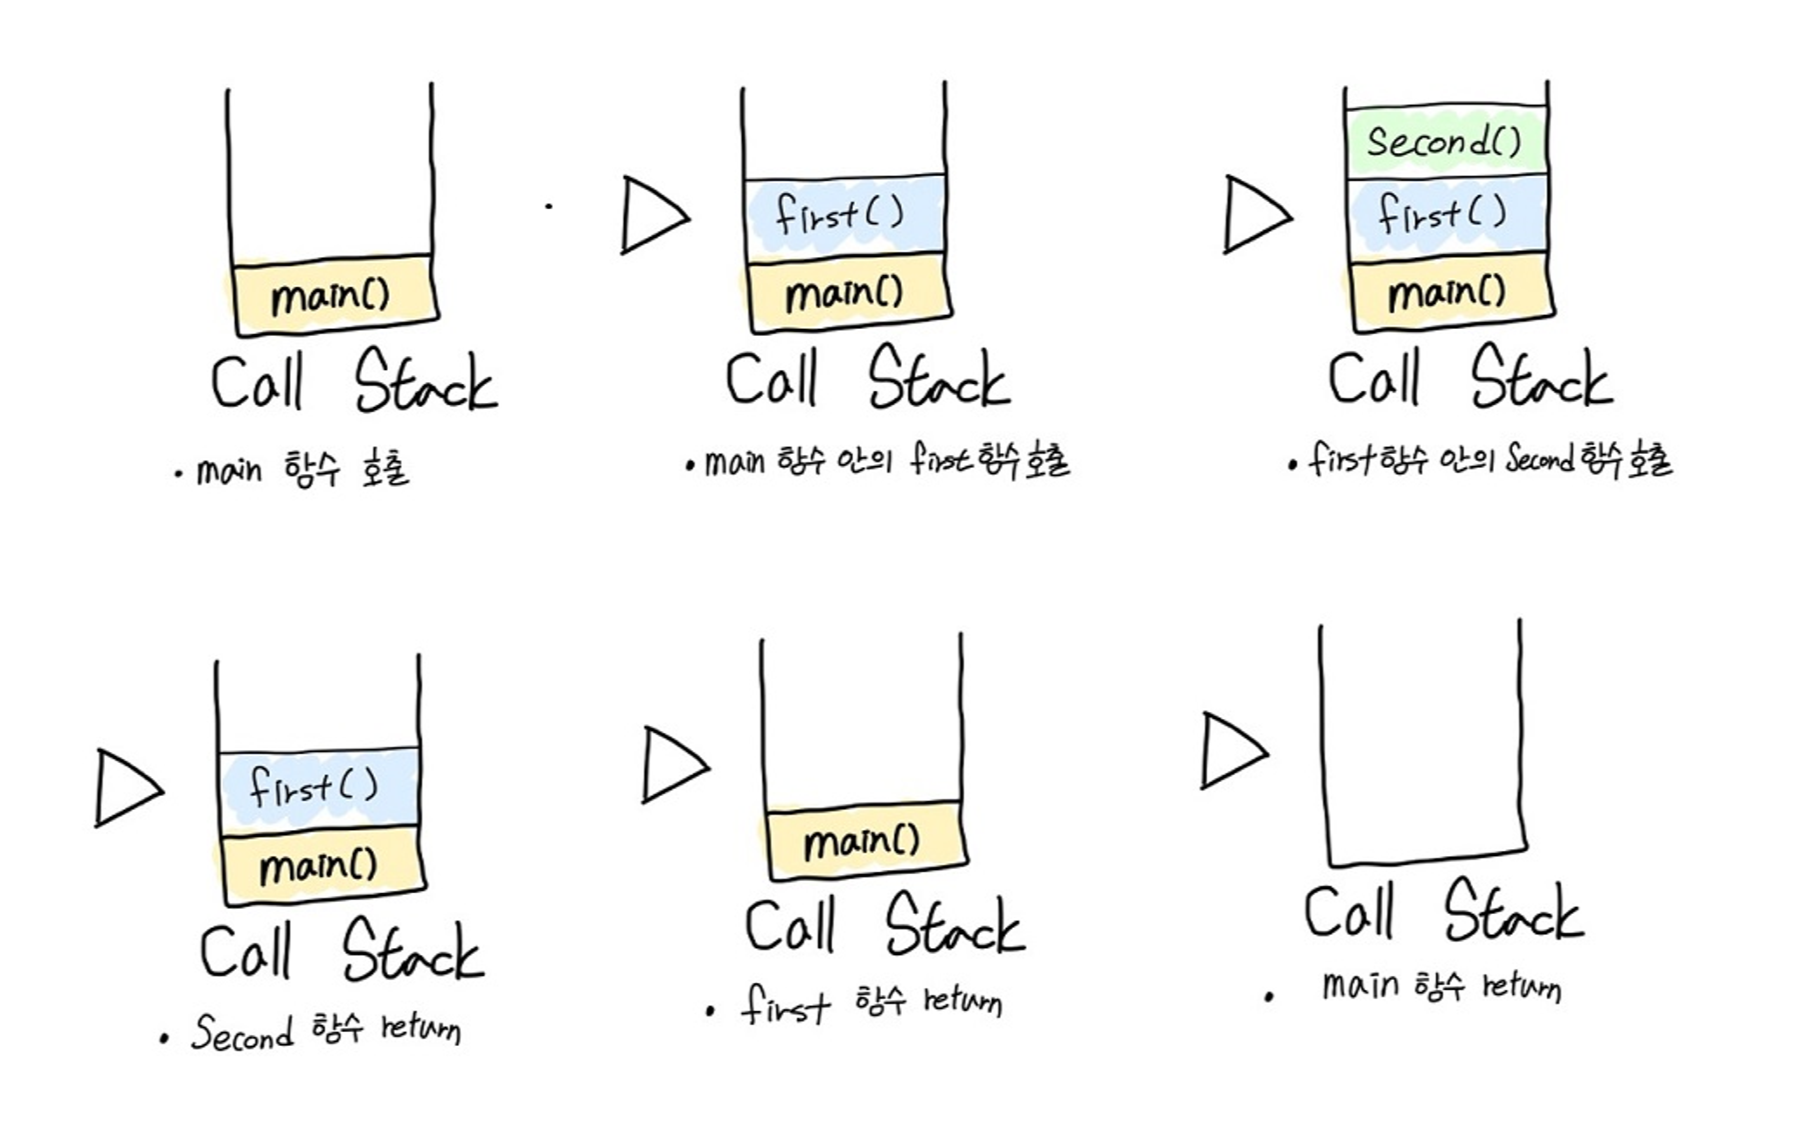 main()
Call Stack
• main 함수 호출
first()
main()
Call Stack
• main 함수 안의 first 함수 호출
Second()
first()
main()
Call Stack
• first 함수 안의 Second 함수 호출
first()
main()
Call Stack
• Second 함수 return
main()
Call Stack
• first 함수 return
Call Stack
• main 함수 return